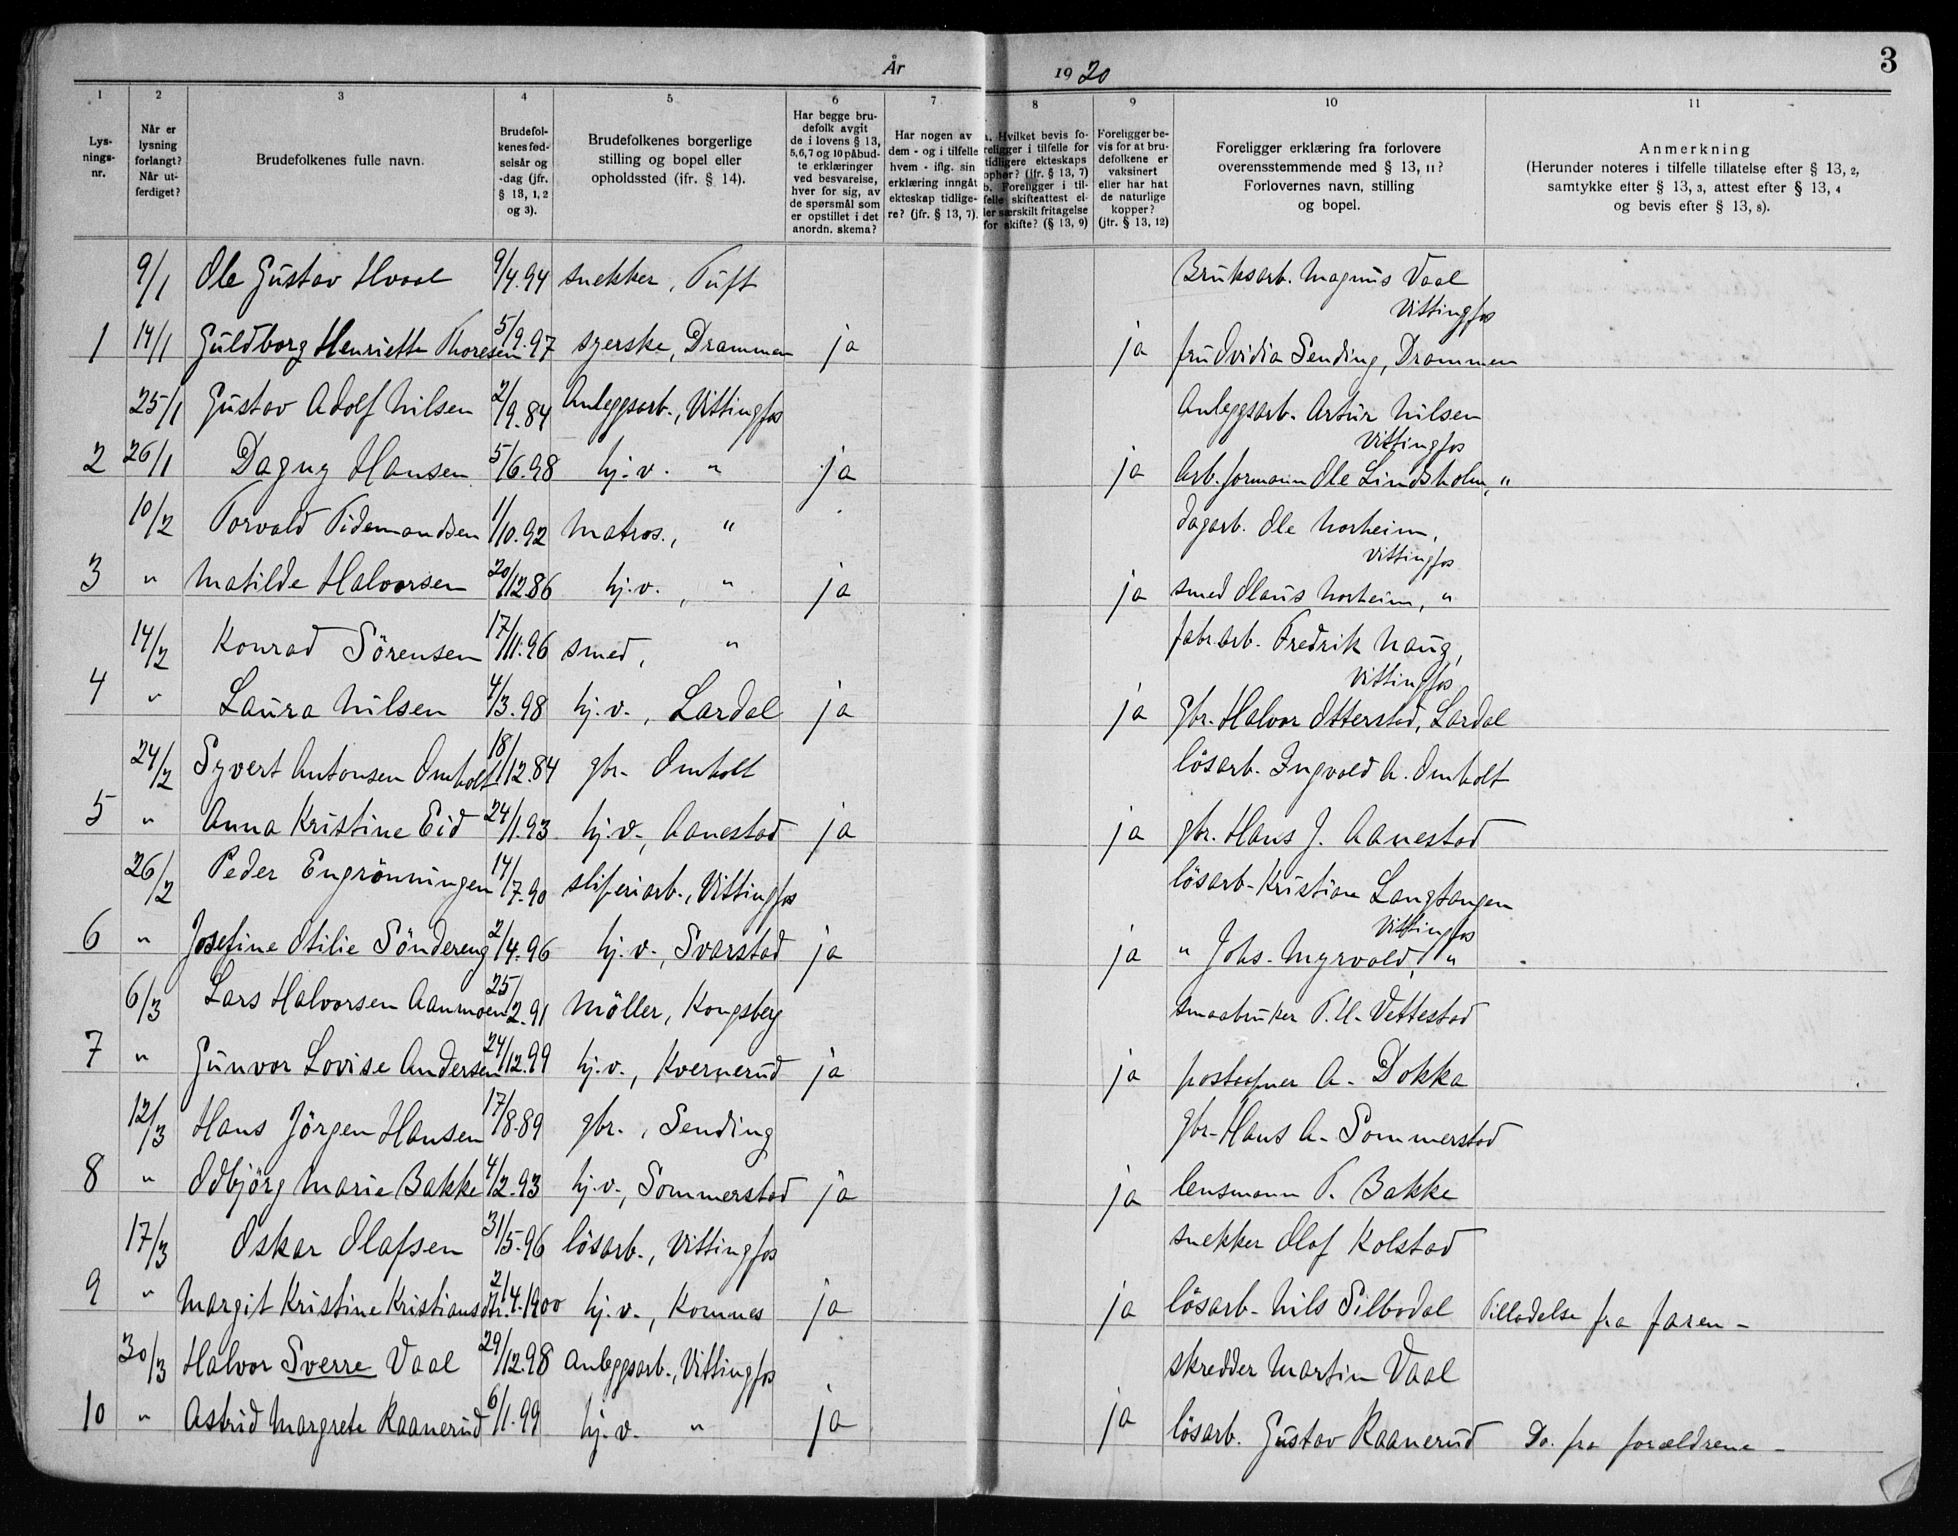 År 1920
3
1 2 3 4 5 6 7 8 9 10 11
Lys-
nings-
nr.
Når er
lysning
forlangt?
Når ut-
ferdiget?
Brudefolkenes fulle navn.
Brudefol-
kenes fød-
selsår og
-dag (jfr.
§ 13, 1, 2
og 3).
Brudefolkenes borgerlige
stilling og bopel eller
opholdssted (ifr. § 14).
Har begge bru-
defolk avgit
de i lovens § 13,
5,6,7 og 10 påbud-
te erklæringer
ved besvarelse,
hver for sig, av
de spørsmål som
er opstillet i det
anordn. skema?
Har nogen av
dem - og i tilfelle
hvem - iflg. sin
erklæring inngåt
ekteskap tidlige-
re? (jfr. § 13, 7).
a. Hvilket bevis fo-
religger i tilfelle for
tidligere ekteskaps
ophør? (jfr. § 13, 7)
b. Foreligger i til-
felle skifteattest el-
ler særskilt fritagelse
for skifte? (§ 13, 9)
Foreligger be-
vis for at bru-
defolkene er
vaksinert
eller har hat
de naturlige
kopper?
(jfr. § 13, 12)
Foreligger erklæring fra forlovere
overensstemmende med § 13, 11?
Forlovernes navn, stilling
og bopel.
Anmerkning
(Herunder noteres i tilfelle tillatelse efter § 13, 2,
samtykke efter § 13, 3, attest efter § 13, 4
og bevis efter § 13, 8).
9/1 Ole Gustav Hvaal 9/4.94 snekker, Tuft Bruksarb. Magnus Vaal
Vittingfos
1 14/1 Guldborg Henriette Thoresen 5/9.97 syerske, Drammen ja ja fru Ovidia Sending, Drammen
25/1 Gustav Adolf Nilsen 2/9.84 Anleggsarb., Vittingfos Anleggsarb. Artur Nilsen
Vittingfos
2 26/1 Dagny Hansen 5/6.98 hj.v. " ja ja Arb.formann Ole Lindsholm, "
10/2 Torvald Tidemandsen 1/10.92 Matros., " Dagarb. Ole Norheim,
Vittingfos
3 " Matilde Halvorsen 20/12.86 hj.v. , " ja ja smed Olaus Norheim, "
14/2 Konrad Sörensen 17/11.96 smed, " fabr.arb. Fredrik Haug,
Vittingfos
4 " Laura Nilsen 4/3.98 hj.v., Lardal ja ja gbr. Halvor Otterstad, Lardal
24/2 Syvert Antonsen Omholt 18/12.84 gbr. Omholt lösarb. Ingvald A. Omholt
5 " Anna Kristine Eid 24/1.93 hj.v., Aanestad ja ja gbr. Hans J. Aanestad
26/2 Peder Engrönningen 14/7.90 sliferiarb., Vittingfos lösarb. Kristian Langtangen
Vittingfos
6 " Josefine Otilie Söndereng 2/4.96 hj.v., Svarstad ja ja " Johs. Myrvold, "
6/3 Lars Halvorsen Aanmoen 25/2.91 Möller, Kongsberg smaabruker T.H. Vettestad
7 " Gunvor Lovise Andersen 24/12.99 hj.v., Kvernerud ja ja postaapner A. Dokka
12/3 Hans Jörgen Hansen 17/8.89 gbr., Sending gbr. Hans A. Sommerstad
8 " Odbjörg Marie Bakke 4/2.93 hj.v., Sommerstad ja ja lensmann T. Bakke
17/3 Oskar Olafsen 31/5.96 lösarb., Vittingfos snekker Olaf Kolstad
9 " Margit Kristine Kristiansdtr. 2/4.1900 hj.v., Komnes ja ja lösarb. Nils Silbodal Tilladelse fra faren -
30/3 Halvor Sverre Vaal 29/12.98 Anleggsarb., Vittingfos skredder Martin Vaal
10 " Astrid Margrete Raanerud 6/1.99 hj.v. " ja ja lösarb. Gustav Raanerud Do. fra forældrene -